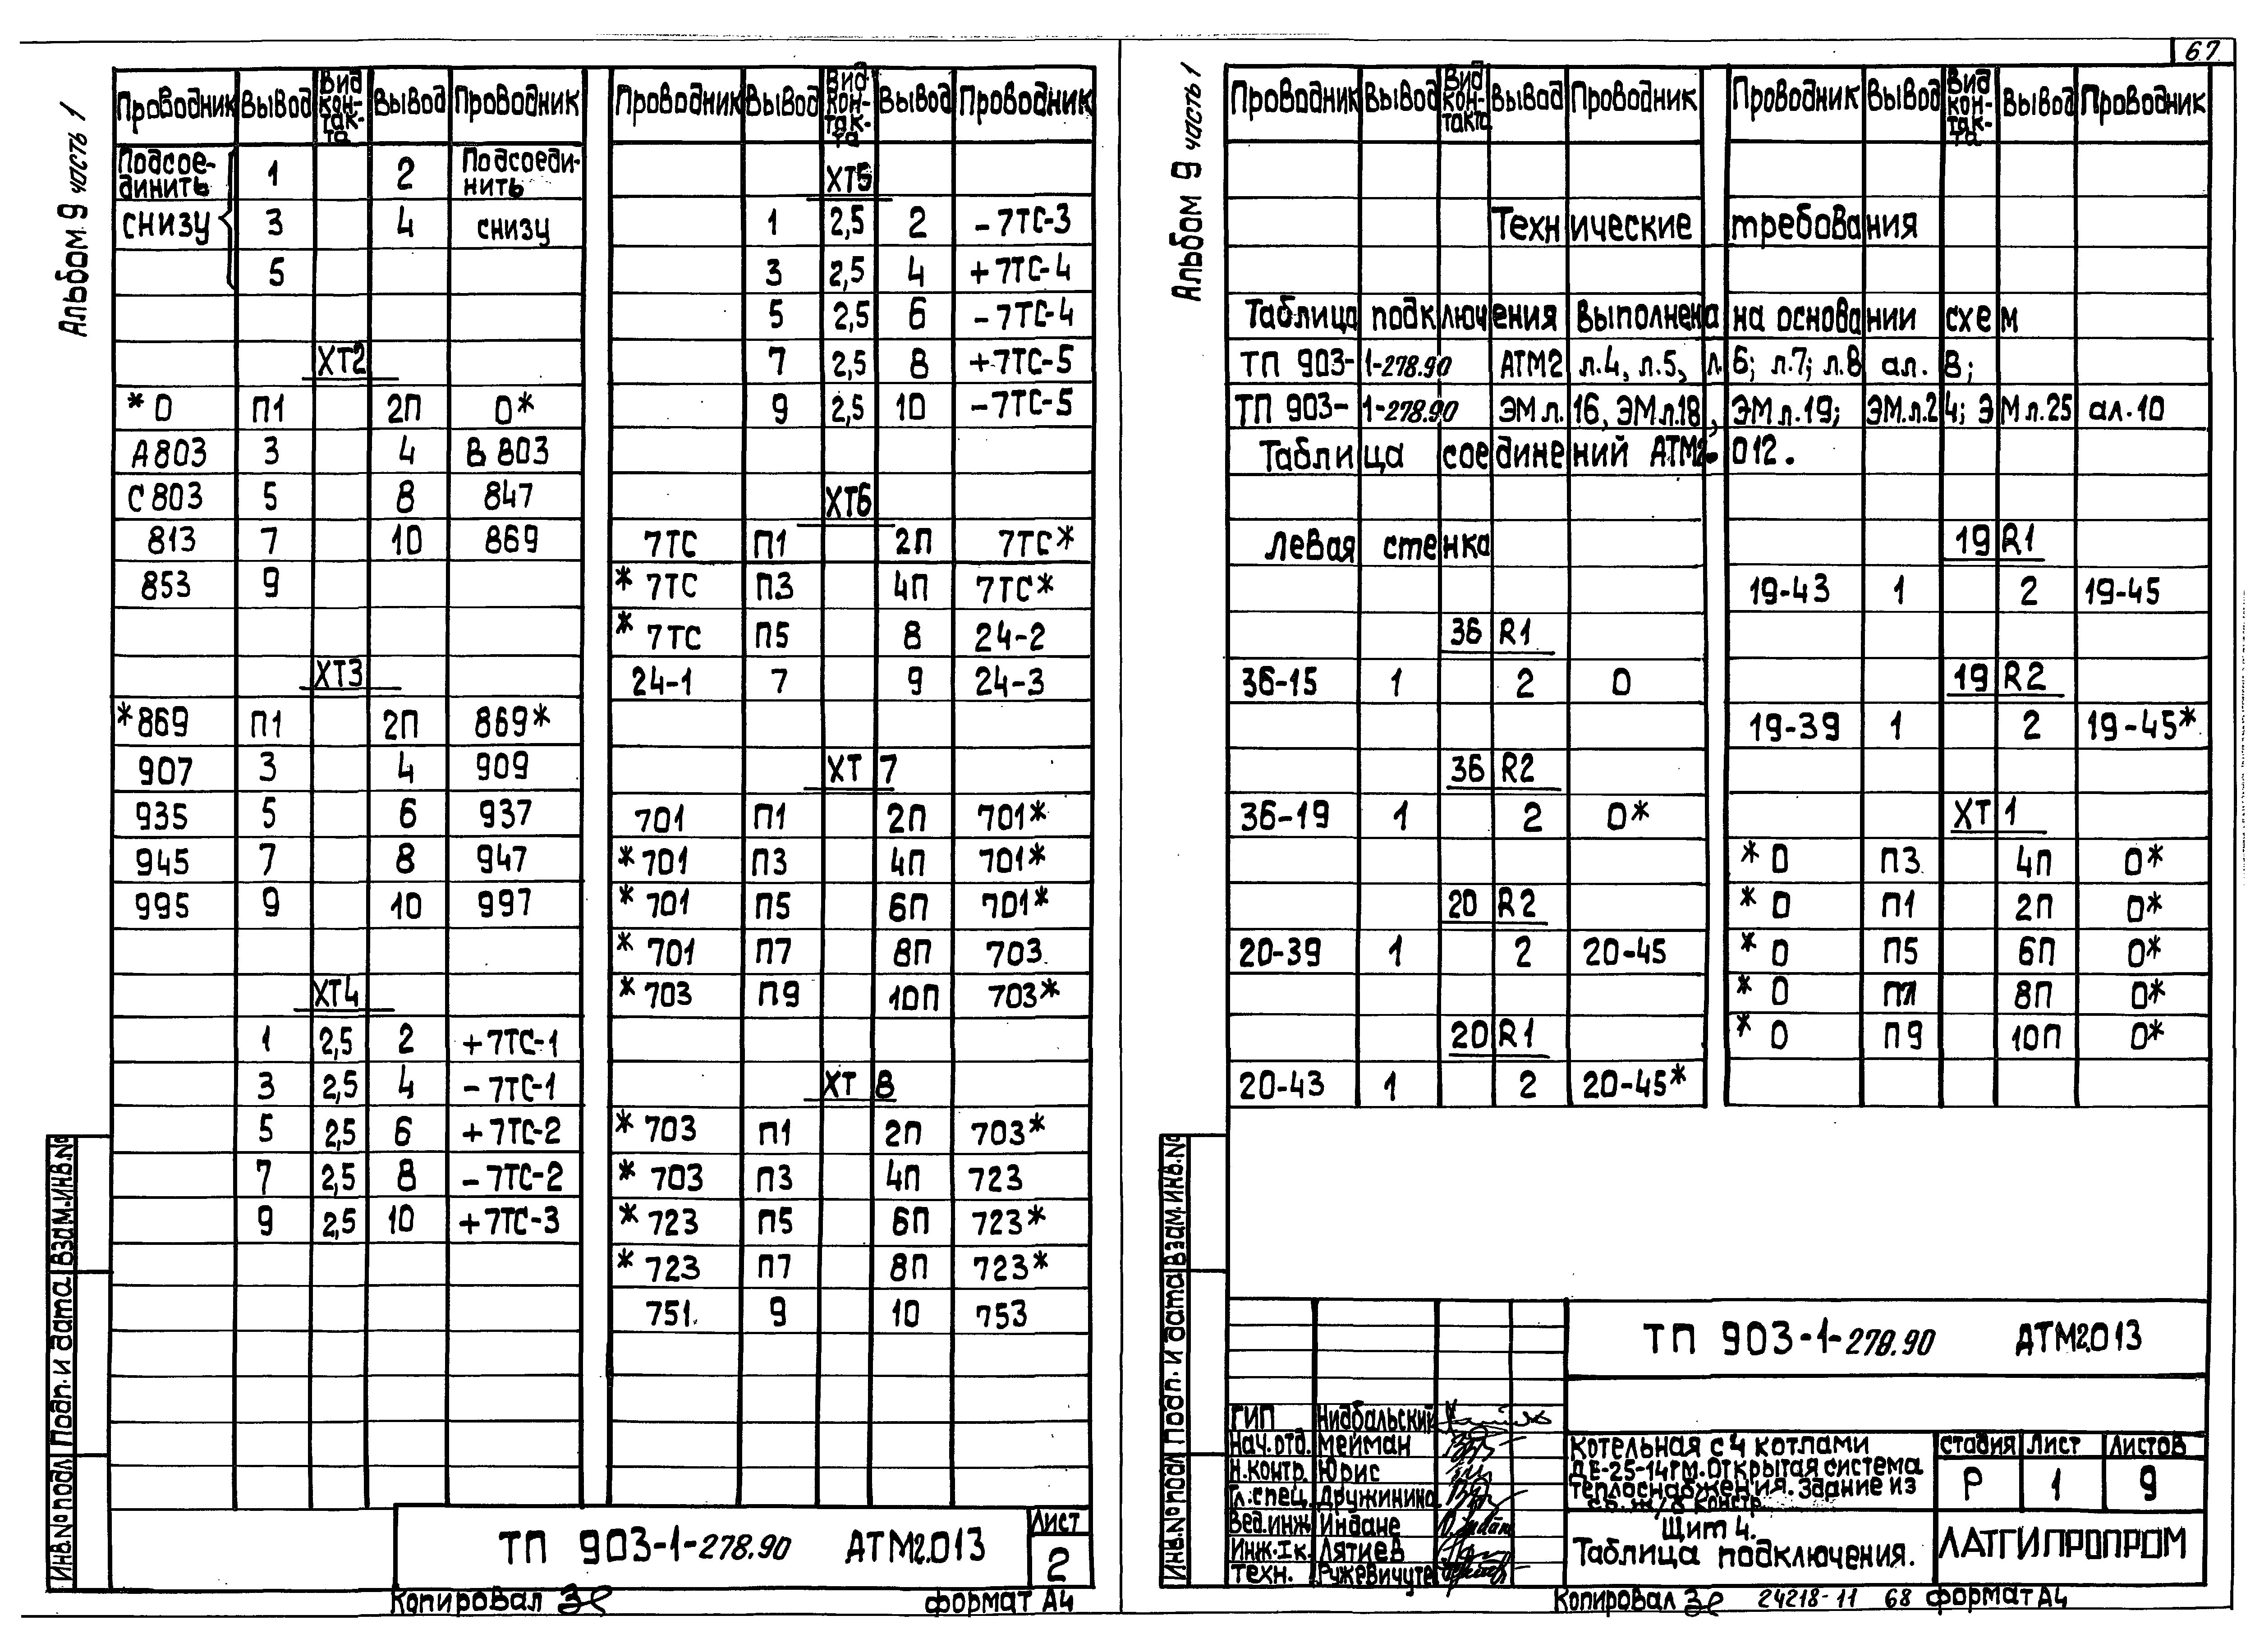 67
Альбом 9 часть 1
Проводник Вывод Вид кон-так-та Вывод Проводник
Подсое-динить снизу 1 2 Подсоеди-нить снизу
3 4
5
ХТ2
*0 П1 2П 0*
А803 3 4 В 803
С803 5 8 847
813 7 10 869
853 9
ХТ3
*869 П1 2П 869*
907 3 4 909
935 5 6 937
945 7 8 947
995 9 10 997
ХТ4
1 2,5 2 +7ТС-1
3 2,5 4 -7ТС-1
5 2,5 6 +7ТС-2
7 2,5 8 -7ТС-2
9 2,5 10 +7ТС-3
Проводник Вывод Вид кон-так-та Вывод Проводник
ХТ5
1 2,5 2 -7ТС-3
3 2,5 4 +7ТС-4
5 2,5 6 -7ТС-4
7 2,5 8 +7ТС-5
9 2,5 10 -7ТС-5
ХТ6
7ТС П1 2П 7ТС*
*7ТС П3 4П 7ТС*
*7ТС П5 8 24-2
24-1 7 9 24-3
ХТ 7
701 П1 2П 701*
*701 П3 4П 701*
*701 П5 6П 701*
*701 П7 8П 703
*703 П9 10П 703*
ХТ 8
*703 П1 2П 703*
*703 П3 4П 723
*723 П5 6П 723*
*723 П7 8П 723*
751 9 10 753
Инв.№ подл Подп. и дата Взам.инв.№
ТП 903-1-278.90 АТМ2.013
Лист
2
Копировал
формат А4
Альбом 9 часть 1
Проводник Вывод Вид кон-такта Вывод Проводник
Проводник Вывод Вид кон-так-та Вывод Проводник
Технические требования
Таблица подключения выполнена на основании схем
ТП 903-1-278.90 АТМ2 л.4, л.5, л.6; л.7; л.8 ал. 8;
ТП 903-1-278.90 ЭМ л.16, ЭМ л.18, ЭМ л.19; ЭМ.л.24; ЭМ л.25 ал.10
Таблица соединений АТМ2.012.
левая стенка
36 R1
36-15 1 2 0
36 R2
36-19 1 2 0*
20 R2
20-39 1 2 20-45
20 R1
20-43 1 2 20-45*
19 R1
19-43 1 2 19-45
19 R2
19-39 1 2 19-45*
ХТ 1
*0 П3 4П 0*
*0 П1 2П 0*
*0 П5 6П 0*
*0 П7 8П 0*
*0 П9 10П 0*
Инв.№ подл Подп. и дата Взам.инв.№
ТП 903-1-278.90 АТМ2.013
ГИП Нидбальский
Нач.отд. Мейман
Н.контр. Юрис
Гл.спец. Дружинина
Вед.инж Индане
Инж.Iк. Лятиев
Техн. Ружевичуте
Котельная с 4 котлами
ДЕ-25-14ГМ. Открытая система
теплоснабжения. Здание из
сб. ж/б констр.
Щит 4.
Таблица подключения.
Стадия Лист Листов
Р 1 9
ЛАТГИПРОПРОМ
Копировал
24218-11 68
формат А4